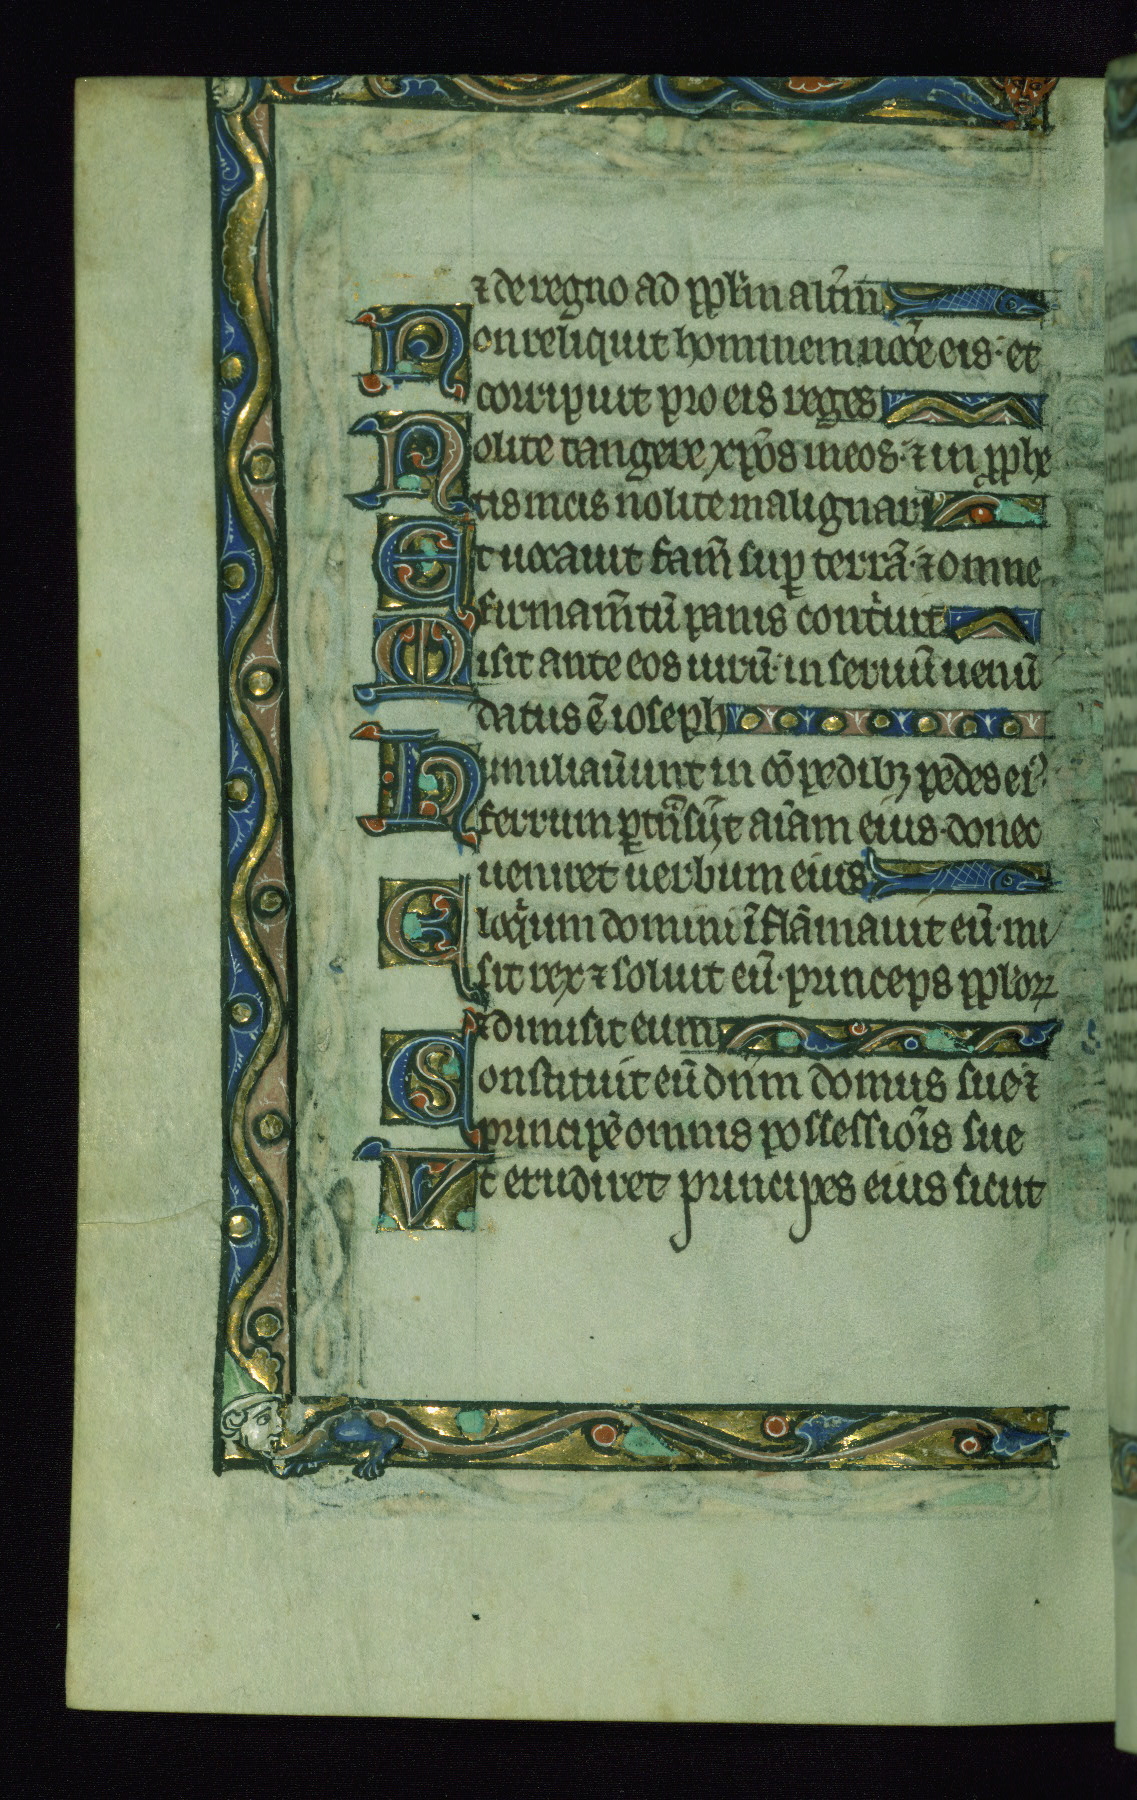 ⁊ de regno ad pp̄lm̄ alt̄m
Non reliquit hominem noc̄e eis· et
corripuit pro eis reges
Nolite tangere xp̄os meos· ⁊ in pp̄he
tis meis nolite malignari
Et uocauit fam̄ sup̄ terrā· ⁊ omne
firmam̄tū panis cont̄uit
Misit ante eos uirū· in seruū uenū
datus ē ioseph
Humiliaūunt in cōpedibꝫ pedes ei᾽
ferrum ꝑtn̄siit aīam eius· donec
ueniret uerbum eius
Eloqͥum domini īflāmauit eū· mi
sit rex ⁊ soluit eū· princeps pp̄loꝝ
⁊ dimisit eum
Constituit eū dn̄m domus sue ⁊
principē omnis possessiōis sue
Vt erudiret principes eius sicut